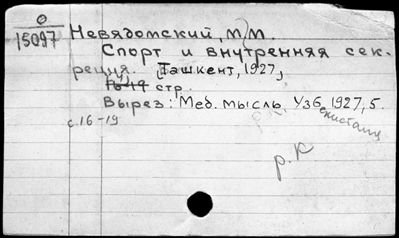 0
15097
Невядомский, М.М.
Спорт и внутренняя сек-
реция. Ташкент, 1927,
16-19 стр.
Вырез: Мед. мысль Узбекистана, 1927, 5.
с.16-19
р. К